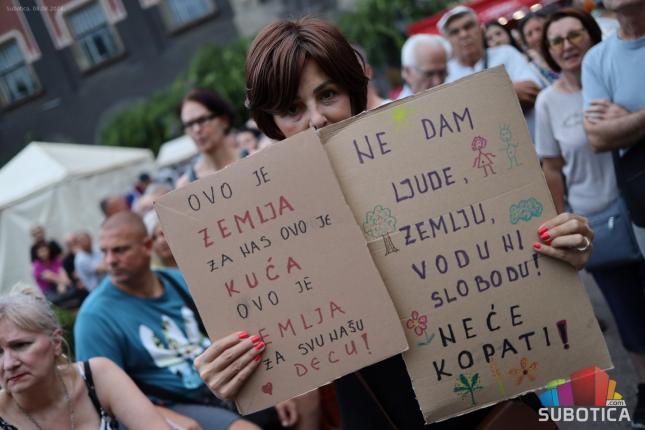 Subotica, 08.08.2024.
OVO JE
ZEMLJA
ZA NAS OVO JE
KUĆA
OVO JE
ZEMLJA
ZA SVU NAŠU
DECU!
NE DAM
LJUDE,
ZEMLJU,
VODU NI
SLOBODU!
NEĆE
KOPATI!
SUBOTICA.com